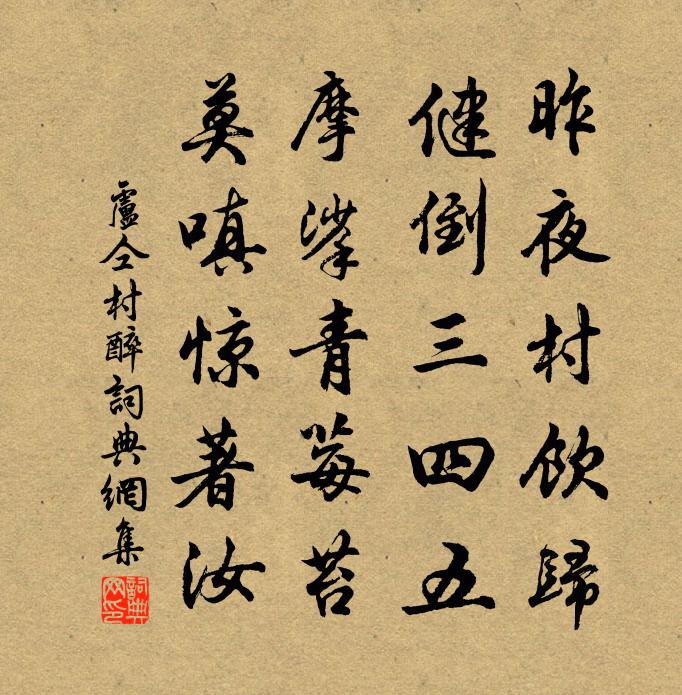 昨夜村饮歸
健倒三四五
摩挲青莓苔
莫嗔惊著汝
盧仝村醉詞典網集
詞典網印